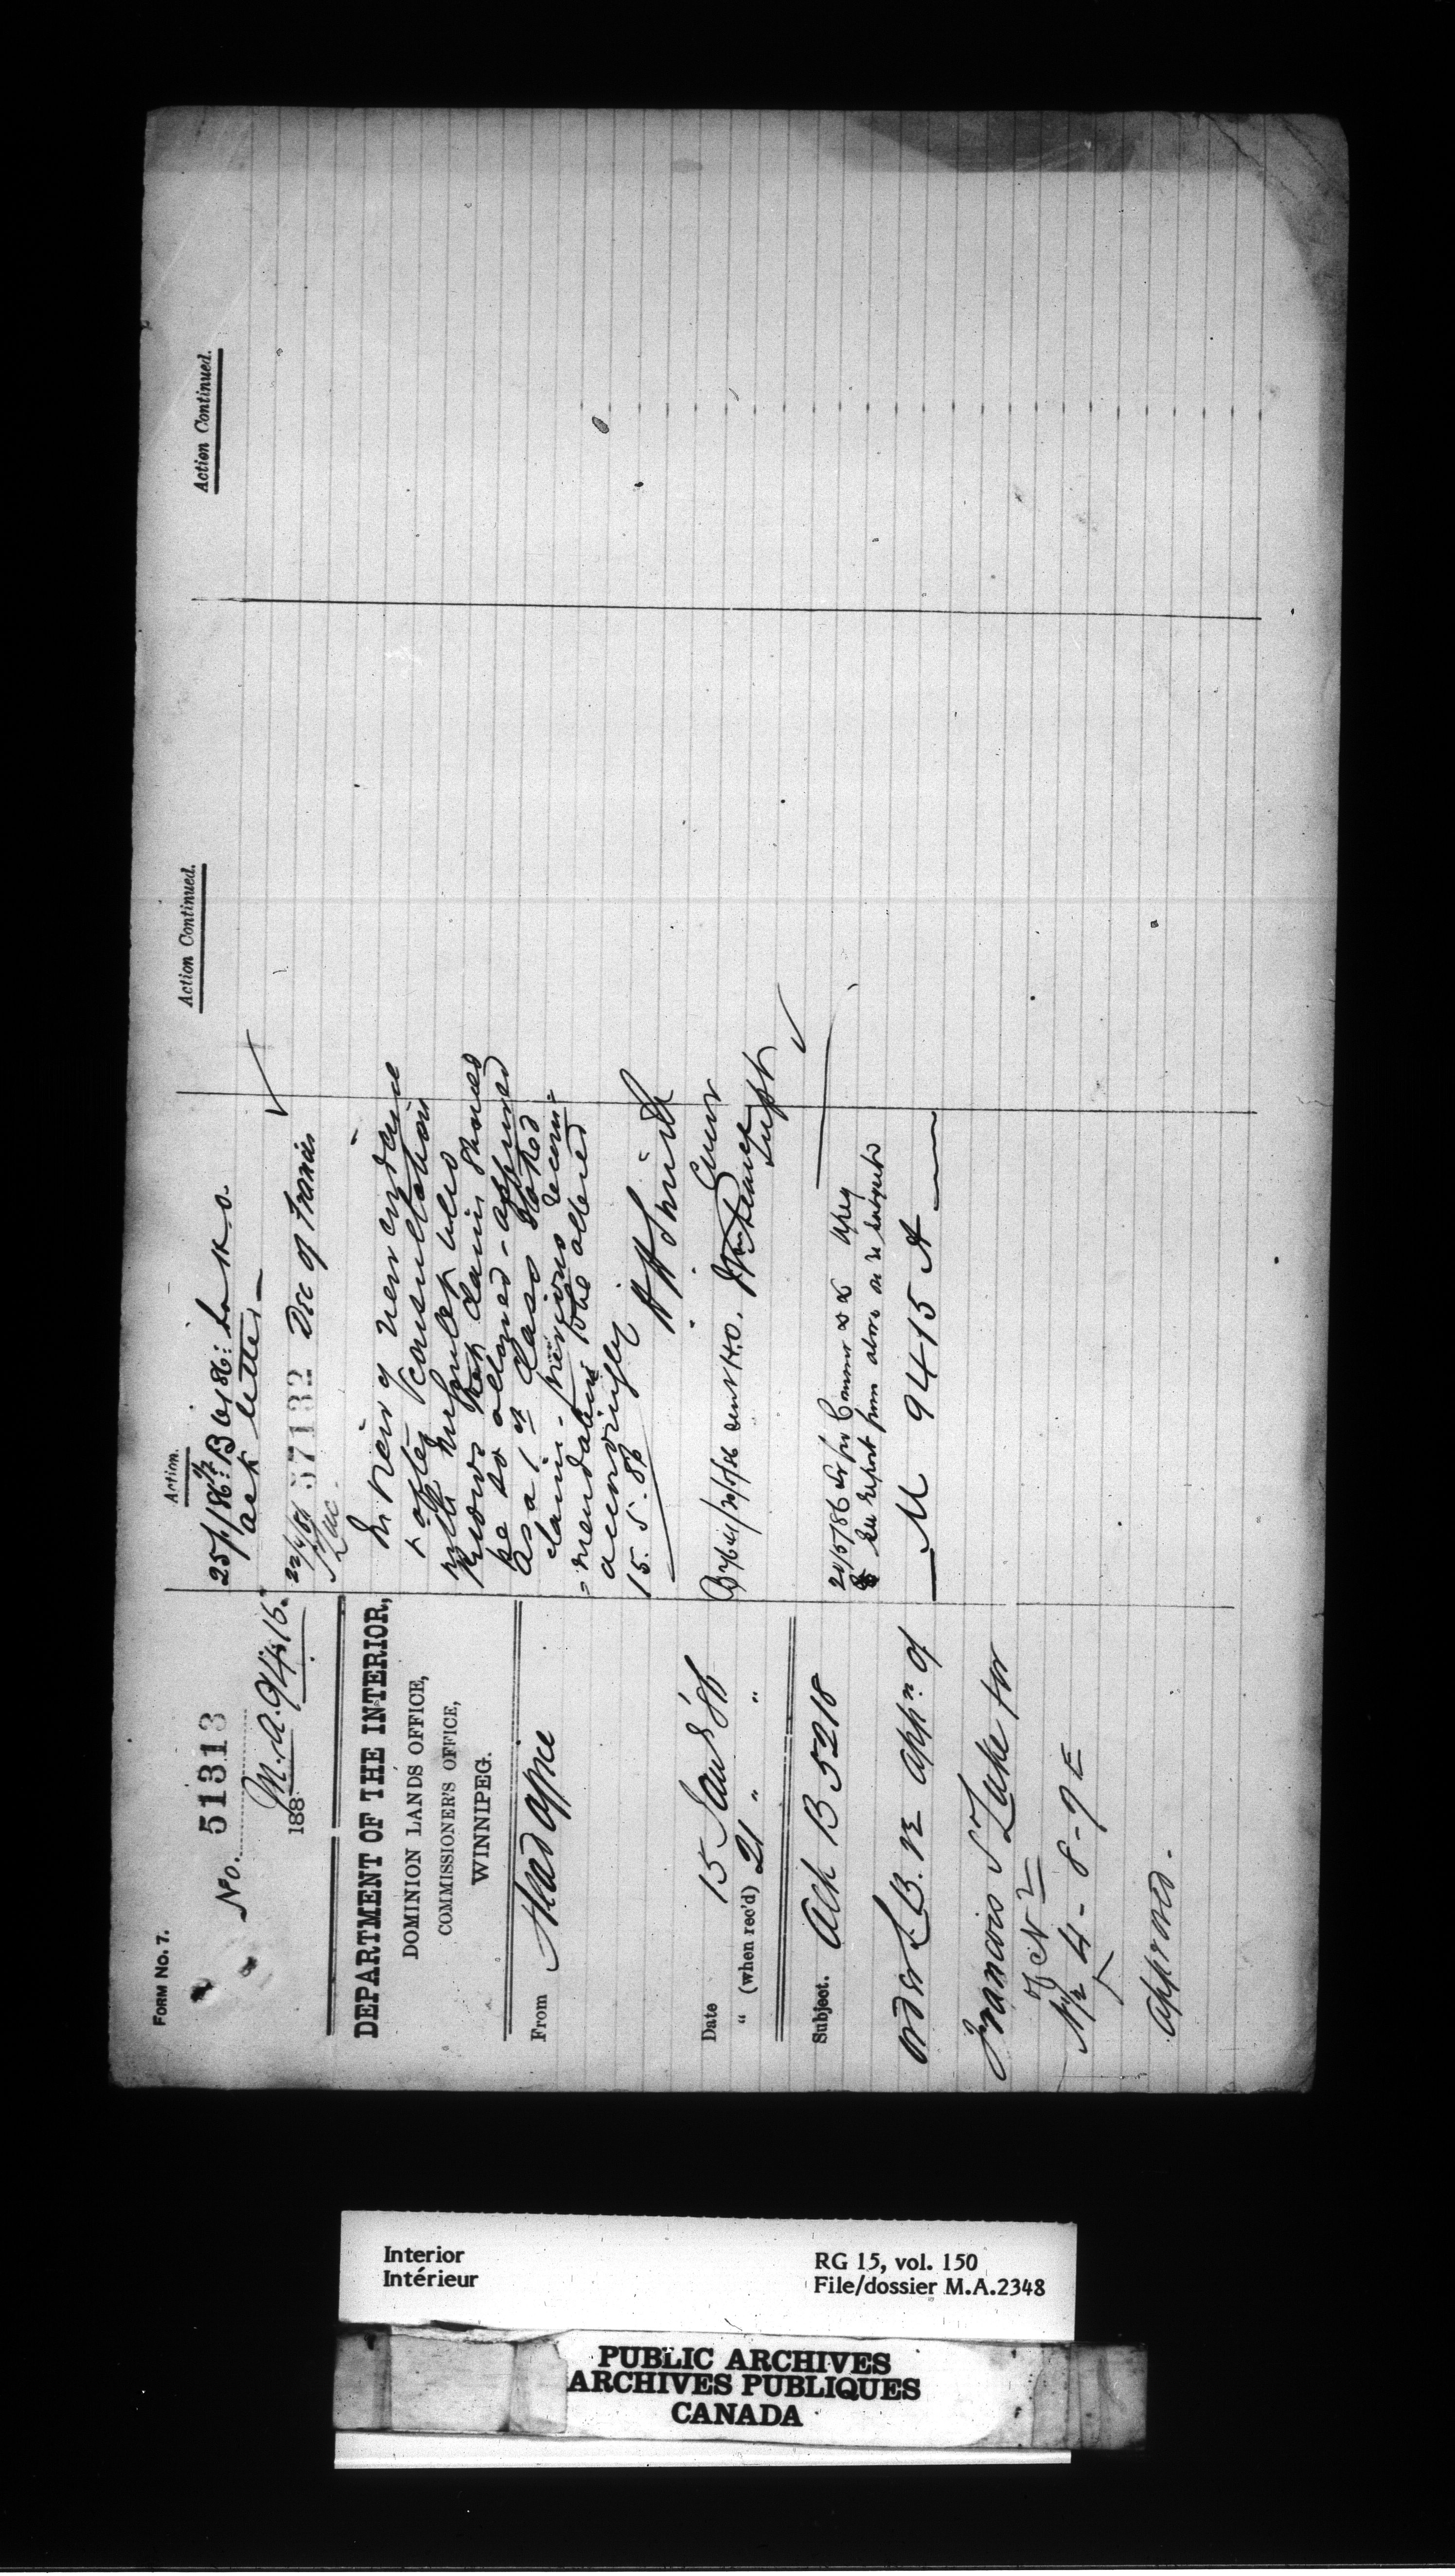 FORM No. 7.
No. 51313
M.A. 9415.
188
DEPARTMENT OF THE INTERIOR,
DOMINION LANDS OFFICE,
COMMISSIONER'S OFFICE,
WINNIPEG.
From Head Office
Date 15 Jany 86
" (when rec'd) 21 " "
Subject. Ack B 5218
order appn of
Francois St Luke for
of N 1/2
4-8-9E
approved.
Action.
25/1/86
ack letter
57132 Dec of Francis
St Luc
In view of new evidence
& after consultation
with
knows that claim should
be so allowed - approved
as a 1st class staked
claim - previous recom=
=mendations to be altered
accordingly
15. 5. 86
H H Smith
H.O. Wm Pearce
Supt
20/5/86
report from above on subject
M 9415 A
Action Continued.
Action Continued.
Interior
Intérieur
RG 15, vol. 150
File/dossier M.A.2348
PUBLIC ARCHIVES
ARCHIVES PUBLIQUES
CANADA